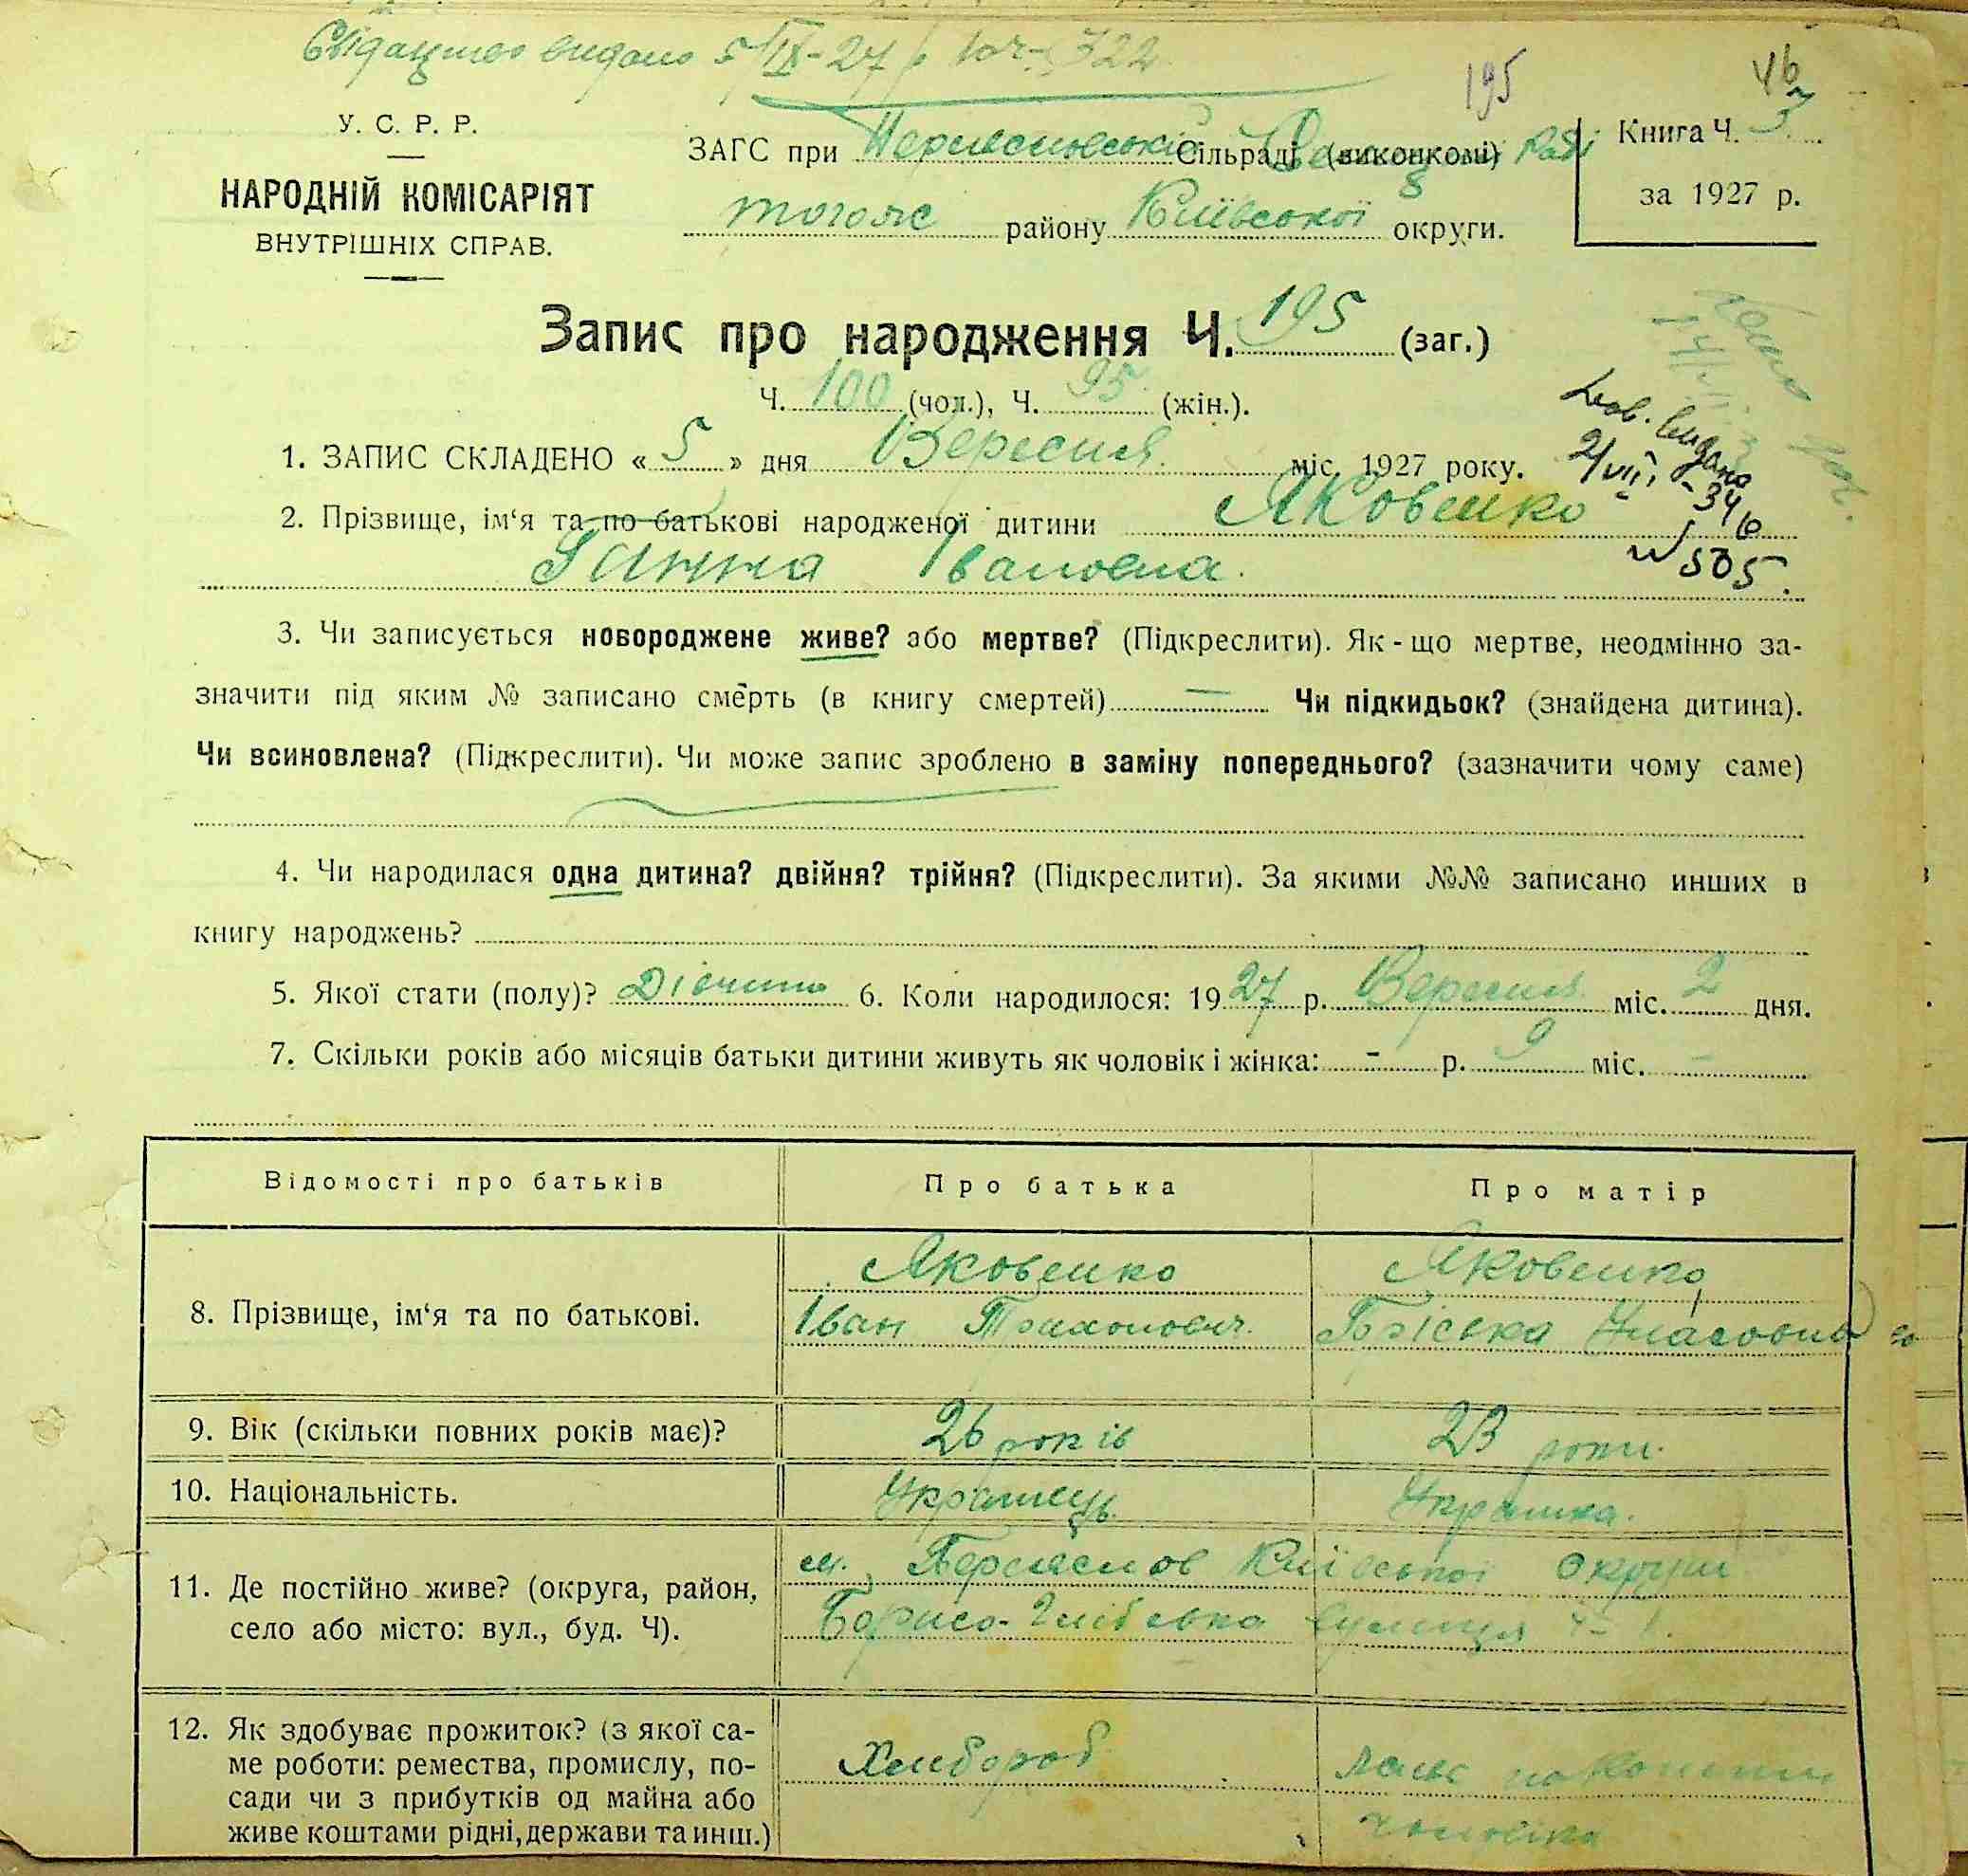 Свідацтво видано 5/IX-27 р. Ч. 722
195
46
У. С. Р. Р.
НАРОДНІЙ КОМІСАРІЯТ
ВНУТРІШНІХ СПРАВ.
ЗАГС при Переяславській Сільраді (виконкомі) Раді
тогож району Київської округи.
Книга Ч. 3
за 1927 р.
Запис про народження Ч. 195 (заг.)
Ч. 100 (чол.), Ч. 95 (жін.).
1. ЗАПИС СКЛАДЕНО « 5 » дня Вересня міс. 1927 року.
видано
2/VII - 34
№ 505.
2. Прізвище, ім‘я та по батькові народженої дитини Яковенко
Ганна Івановна.
3. Чи записується новороджене живе? або мертве? (Підкреслити). Як - що мертве, неодмінно за-
значити під яким № записано смерть (в книгу смертей) — Чи підкидьок? (знайдена дитина).
Чи всиновлена? (Підкреслити). Чи може запис зроблено в заміну попереднього? (зазначити чому саме)
4. Чи народилася одна дитина? двійня? трійня? (Підкреслити). За якими №№ записано инших в
книгу народжень?
5. Якої стати (полу)? Дівчина 6. Коли народилося: 1927 р. Вересня міс. 2 дня.
7. Скільки років або місяців батьки дитини живуть як чоловік і жінка: - р. 9 міс. -
Відомості про батьків Про батька Про матір
8. Прізвище, ім‘я та по батькові. Яковенко Яковенко
Іван
9. Вік (скільки повних років має)? 26 років 23 роки.
10. Національність. Українець Українка.
11. Де постійно живе? (округа, район,
село або місто: вул., буд. Ч).
м. Переяслов Київської округи
Борисо-Глібська вулиця Ч- 1.
12. Як здобуває прожиток? (з якої са-
ме роботи: ремества, промислу, по-
сади чи з прибутків од майна або
живе коштами рідні, держави та инш.)
Хлібороб
чоловіка